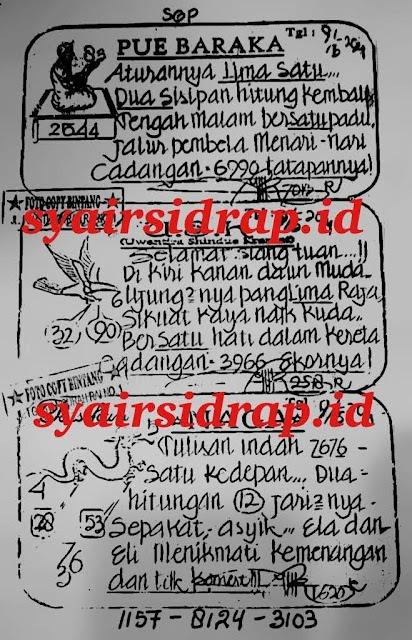 SGP
PUE BARAKA
Tgl: 9/-
Aturannya Lima Satu...
Dua Sisipan hitung kembali
Tengah malam bersatu padu.
Jalur pembela Menari-nari
Cadangan - 6790 tatapannya!
2644
FOTO COPY BINTANG
syairsidrap.id
Selamat siang tuan...!!
Di kiri kanan daun muda..
Ujung2nya panglima Raja,
Sikuat kaya naik kuda..
Bersatu hati dalam kereta
Cadangan - 3966 Ekornya!
32 90
258 R
FOTO COPY BINTANG
syairsidrap.id
Tulisan indah 7676 -
Satu kedepan... Dua -
hitungan 12 jari2nya -
Sepakat,- asyik... Ela dan
Eli Menikmati kemenangan
dan titk
4
28 53
1157 - 8124 - 3103